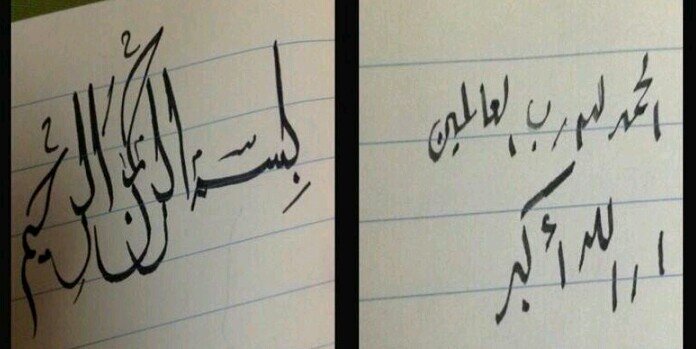 بسم الرحمن الرحيم
الحمد لله رب العالمين
الله أكبر